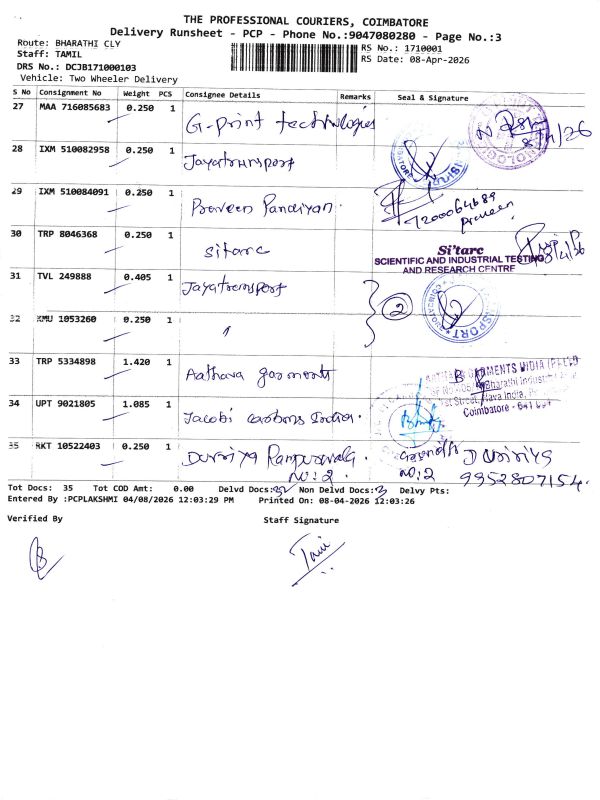 THE PROFESSIONAL COURIERS, COIMBATORE
Delivery Runsheet - PCP - Phone No.:9047080280 - Page No.:3
Route: BHARATHI CLY
RS No.: 1710001
Staff: TAMIL
RS Date: 08-Apr-2026
DRS No.: DCJB171000103
Vehicle: Two Wheeler Delivery
S No Consignment No Weight PCS Consignee Details Remarks Seal & Signature
27 MAA 716085683 0.250 1 G-Print technologies
28 IXM 510082958 0.250 1 Jayatransport
29 IXM 510084091 0.250 1 Praveen Pandiyan. 7200064689
praveen
30 TRP 8046368 0.250 1 sitarc
Si'tarc
SCIENTIFIC AND INDUSTRIAL TESTING
AND RESEARCH CENTRE
31 TVL 249888 0.405 1 Jayatransport 2
32 KMU 1053260 0.250 1 "
33 TRP 5334898 1.420 1 Aathava garments
GARMENTS INDIA (P) LTD
Bharathi Industrial
Street, Nava India,
Coimbatore - 641
34 UPT 9021805 1.085 1 Jacobi carbons India.
35 RKT 10522403 0.250 1 Durriya Rampurwala.
NO: 2
NO: 2
9952807154.
Tot Docs: 35 Tot COD Amt: 0.00 Delvd Docs: 32 Non Delvd Docs: 3 Delvy Pts:
Entered By :PCPLAKSHMI 04/08/2026 12:03:29 PM Printed On: 08-04-2026 12:03:26
Verified By Staff Signature